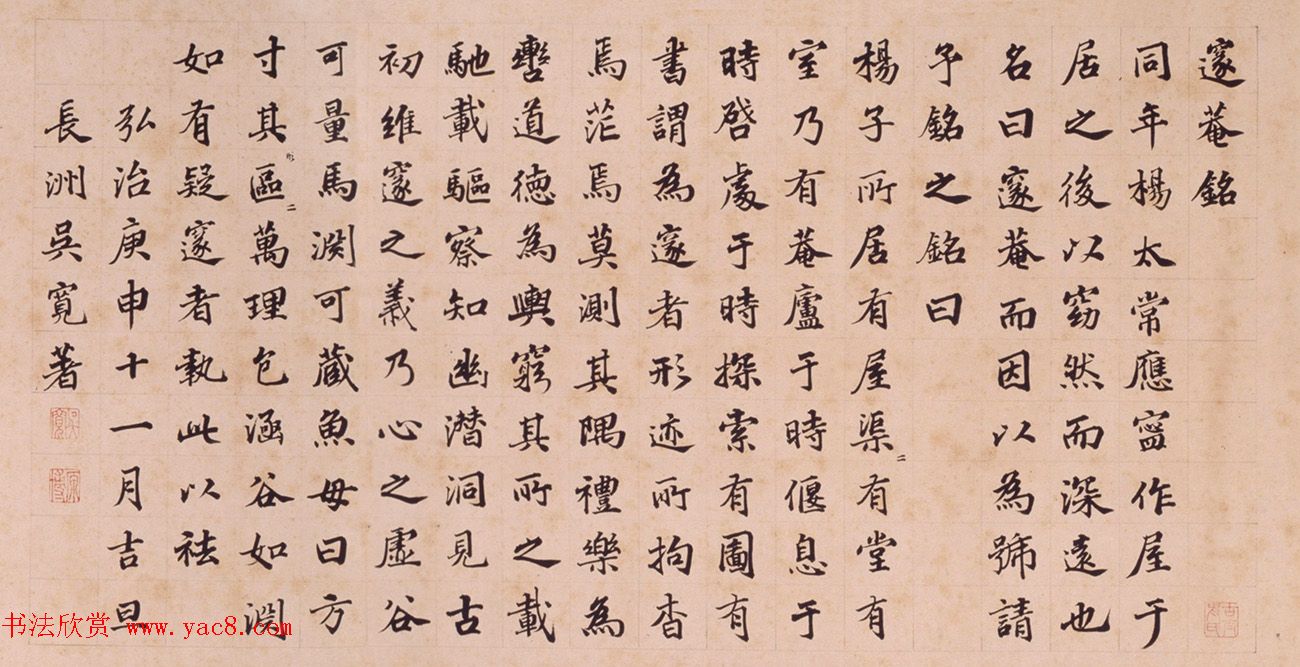 邃菴銘
同年楊太常應寗作屋于
居之後以窈然而深遠也
名曰邃菴而因以為號請
予銘之銘曰
楊子所居有屋渠〻有堂有
室乃有菴廬于時偃息于
時啓處于時探索有圖有
書謂為邃者形迹所拘杳
焉茫焉莫測其隅禮樂為
轡道德為輿窮其所之載
馳載驅察知幽潜洞見古
初維邃之義乃心之虛谷
可量馬渕可蔵魚毋曰方
寸其區〻萬理包涵谷如渕
如有疑邃者執此以袪
弘治庚申十一月吉旦
長洲吳寬著
吳寬
原博
书法欣赏 www.yac8.com